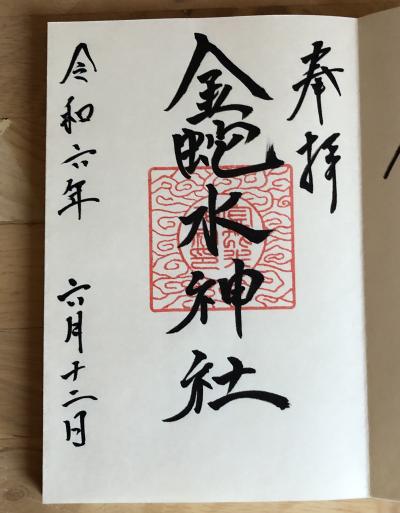 奉拝
金蛇水神社
令和六年 六月十二日